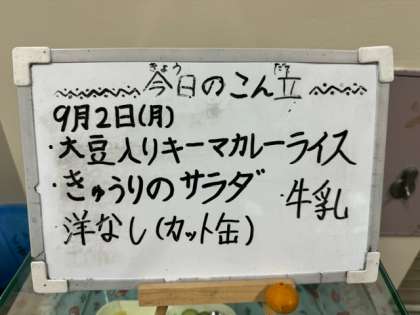 きょう だて
今日のこん立
9月2日(月)
・大豆入りキーマカレーライス
・きゅうりのサラダ
・牛乳
洋なし(カット缶)